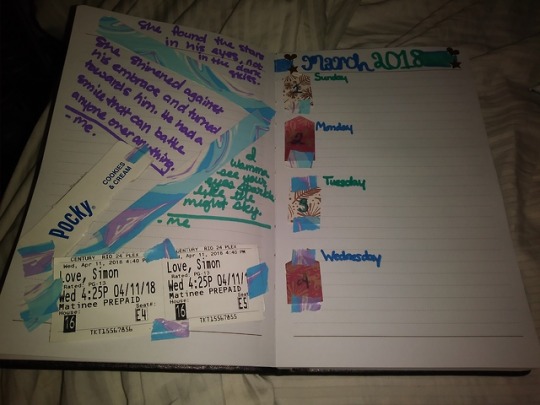 She found the stars
in his eyes, not
in the dark
skies.
She shivered against
his embrace and turned
towards him. He had a
smile that can battle
anyone over anything.
- me.
I
wanna
see your
eyes sparkle
like the
night sky.
- me
COOKIES
& CREAM
pocky
CENTURY RIO 24 PLEX
Wed, Apr 11, 2018 4:40 P
Love, Simon
Rated PG-13
Wed 4:25P 04/11/18
Matinee PREPAID
House: Seat:
16 E4
TKT15567856
CENTURY RIO 24 PLEX
Wed, Apr 11, 2018 4:40 PM
Love, Simon
Rated PG-13
Wed 4:25P 04/11/
Matinee PREPAID
House: Seat:
16 E5
TKT15567855
March 2018
Sunday
Monday
2
Tuesday
3
Wednesday
4